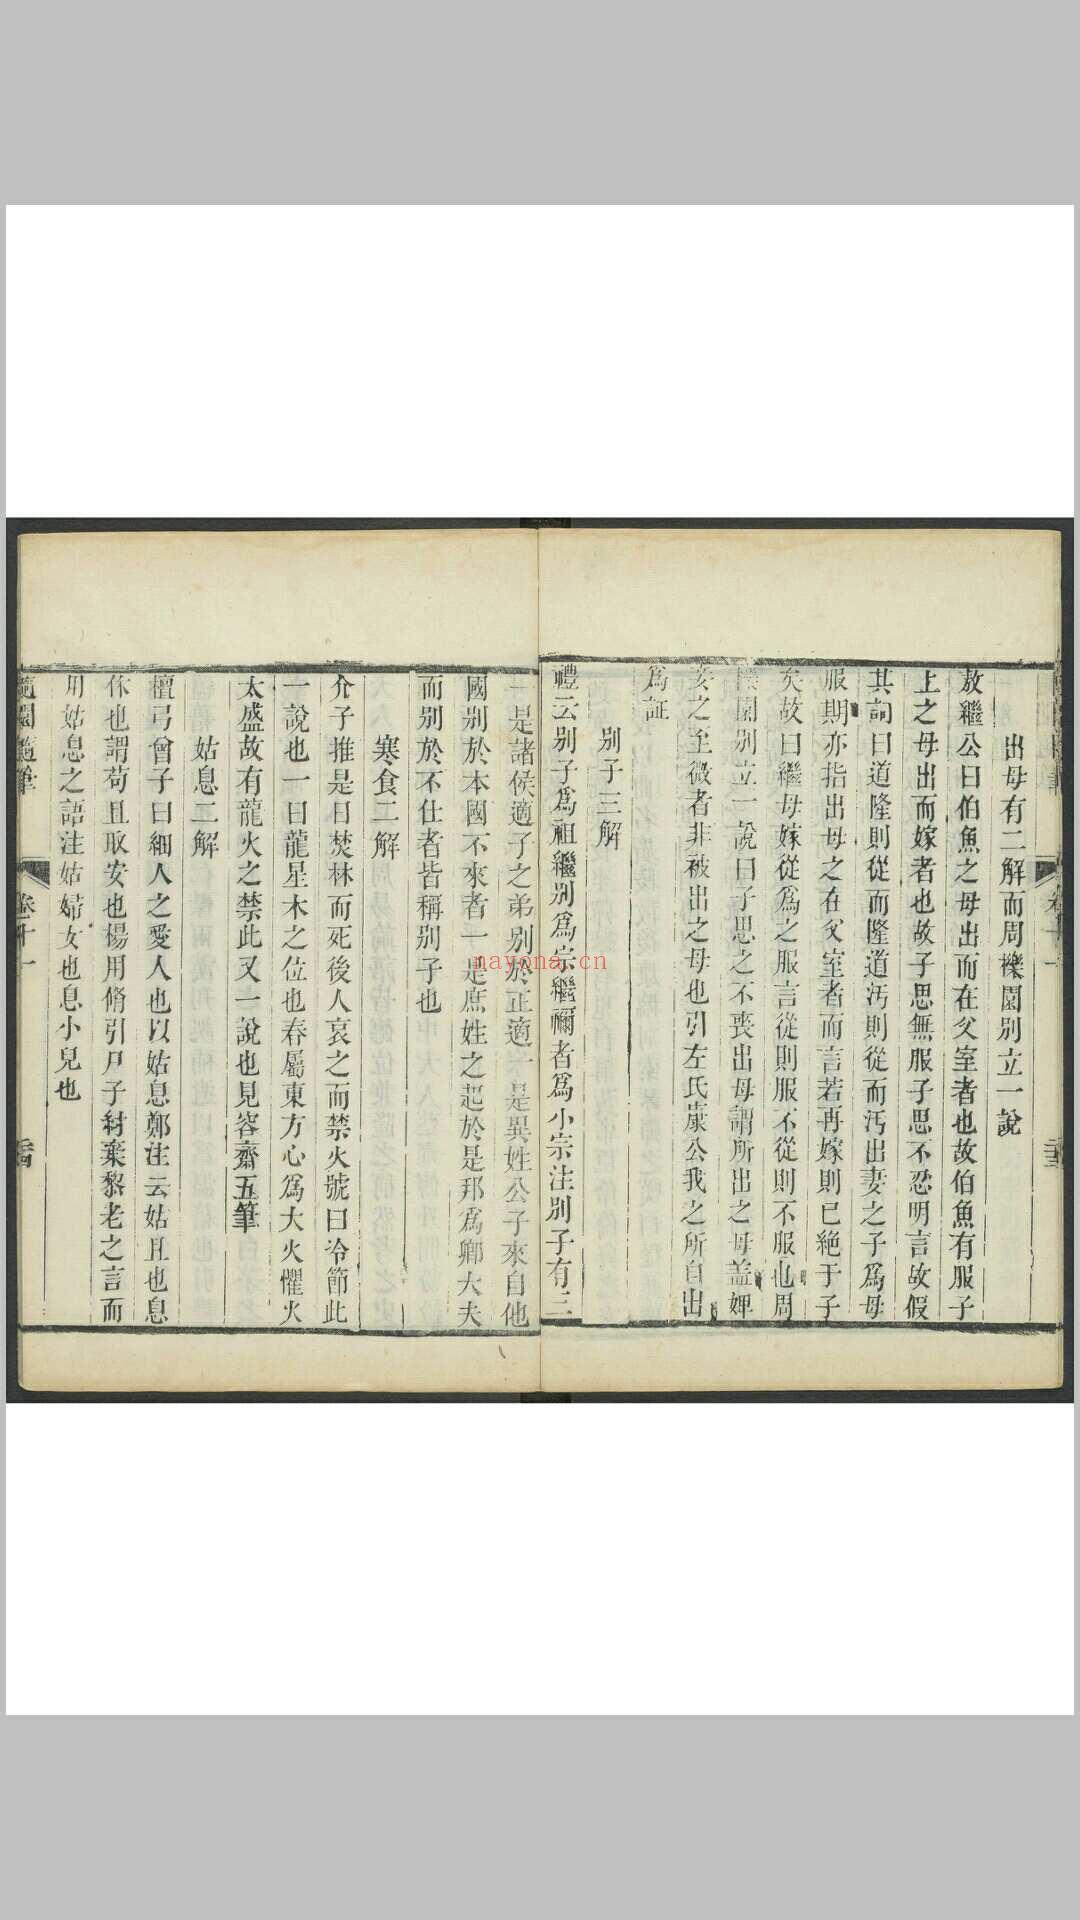 出母有二解而周櫟園别立一說
敖繼公曰伯魚之母出而在父室者也故伯魚有服子
上之母出而嫁者也故子思無服子思不忍明言故假
其詞曰道隆則從而隆道汚則從而汚出妻之子爲母
服期亦指出母之在父室者而言若再嫁則已絶于子
矣故曰繼母嫁從爲之服言從則服不從則不服也周
櫟園别立一說曰子思之不喪出母謂所出之母盖婢
妾之至微者非被出之母也引左氏康公我之所自出
爲証
别子三解
禮云别子爲祖繼别爲宗繼禰者爲小宗注别子有三
一是諸侯適子之弟别於正適一是異姓公子來自他
國别於本國不來者一是庶姓之起於是邦爲卿大夫
而别於不仕者皆稱别子也
寒食二解
介子推是日焚林而死後人哀之而禁火號曰冷節此
一說也一曰龍星木之位也春屬東方心爲大火懼火
太盛故有龍火之禁此又一說也見容齋五筆
姑息二解
檀弓曾子曰細人之愛人也以姑息鄭注云姑且也息
休也謂苟且取安也楊用脩引尸子紂棄黎老之言而
用姑息之語注姑婦女也息小兒也
隨園隨筆
卷十一
nayona.cn